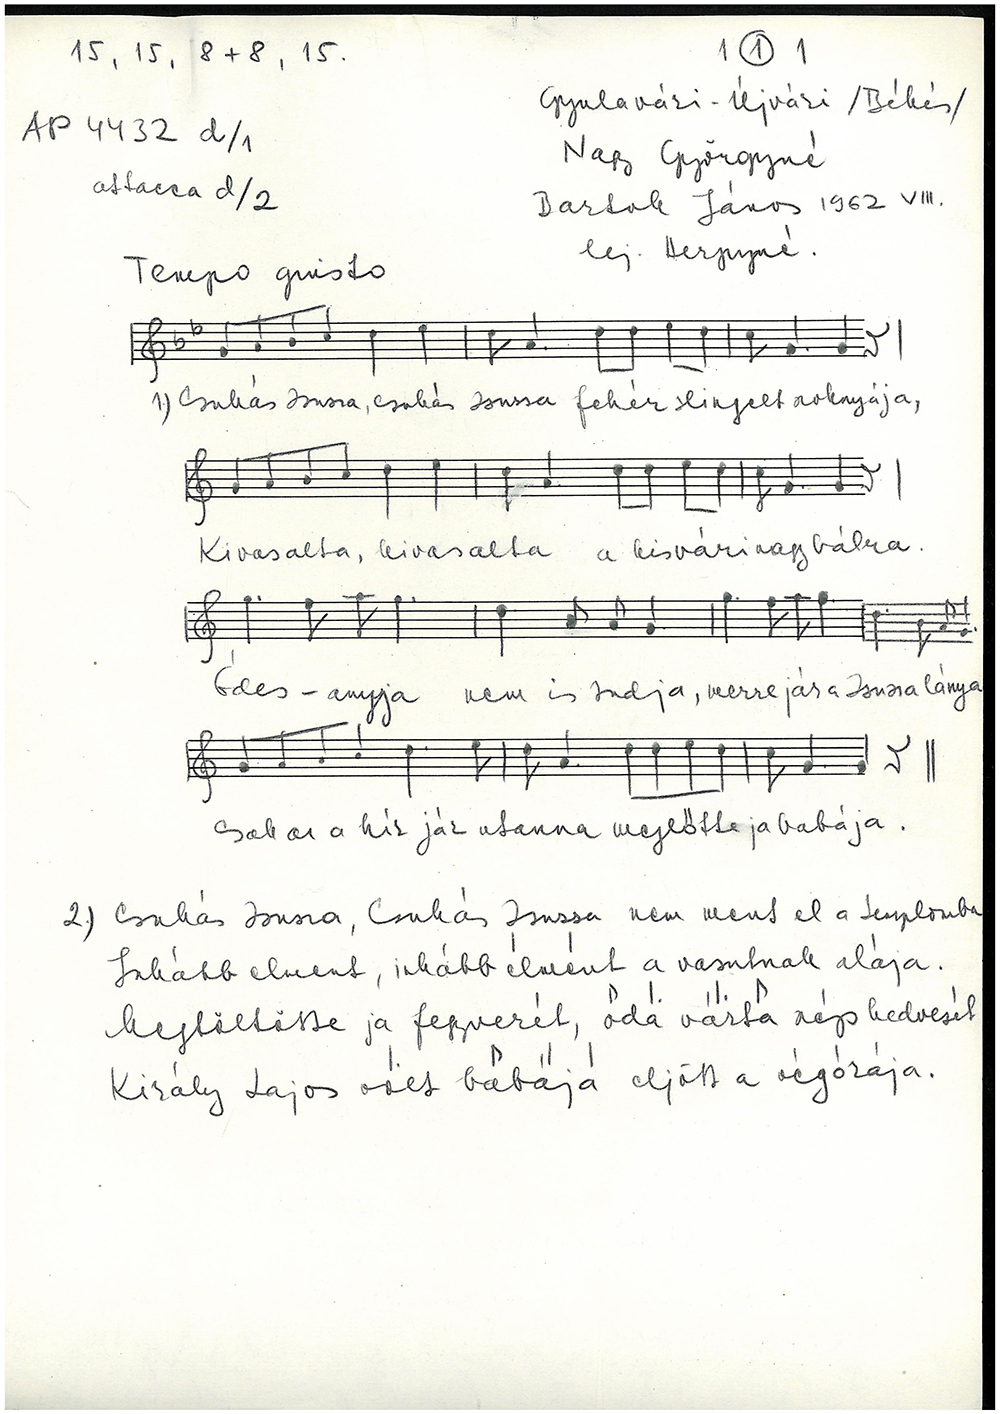 15, 15, 8+8, 15.
1 1 1
AP 4432 d/1
attacca d/2
Gyulavári-Újvári /Békés/
Nagy Györgyné
Bartók János 1962 VIII.
lej.
Tempo giusto
1) Csukás Zsuzsa, csukás Zsuzssa fehér slingelt soknyája,
Kivasalta, kivasalta a kisvári nagy bálra.
Édes-anyja nem is tudja, merre jár a Zsuzsa lánya
Csak az a hír jár utanna meglőtte ja babája.
2.) Csukás Zsuzsa, Csukás Zsuzssa nem ment el a templomba
Inkább elment, inkább elment a vasutnak alája.
Megtöltötte ja fegyverét, oda várta szép kedvesét
Király Lajos vólt babájá eljött a végórája.